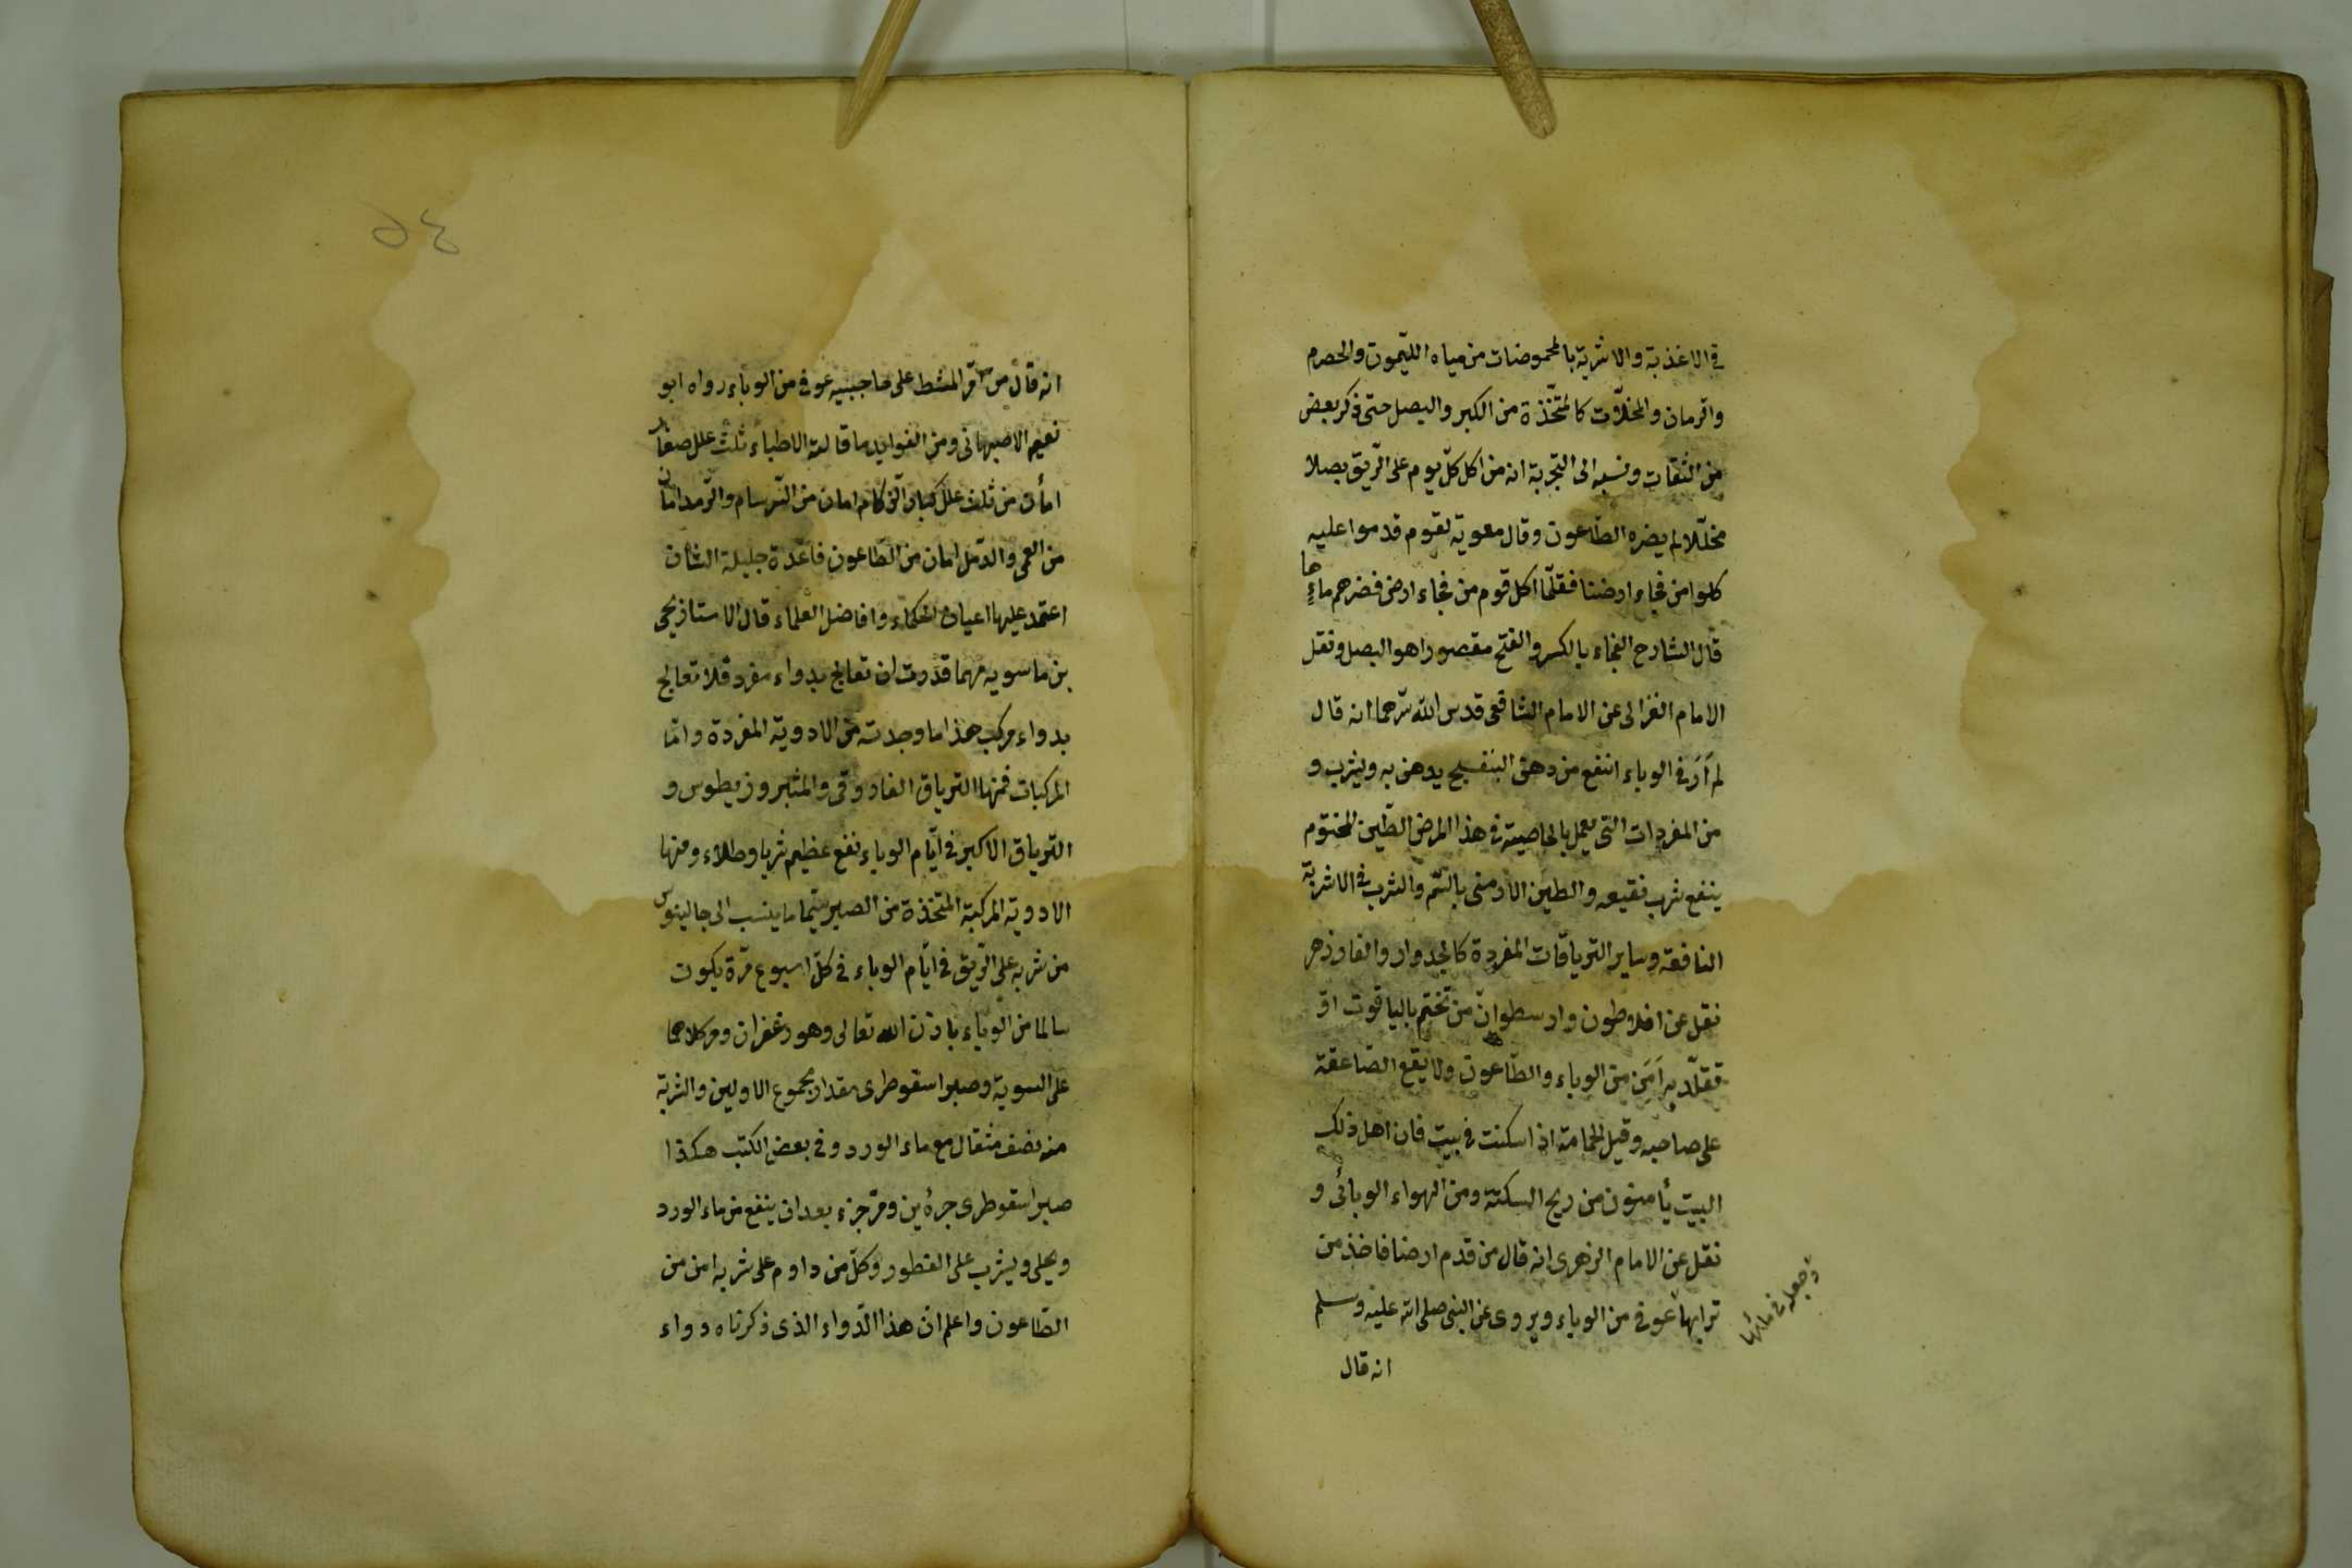 في الاغذية والاشربة بالمحموضات من مياه الليمون والحصرم
والرمان والمخللّات كالمتّخذة من الكبر والبصل حتى ذكر بعض
من الثقات ونسبه الى التجربة انه من اكل كلّ يوم على الرّيق بصلا
مخلّلا لم يضره الطّاعون وقال معوية لقوم قدموا عليه
كلوا من فجاء ارضنا فقلّما اكل قوم من فجاء ارض فضرهم ماءها
قال الشارح الفجاء بالكسر والفتح مقصورا هو البصل ونقل
الامام الغزالى عن الامام الشافعى قدس الله سرّهما انه قال
لم اَرَ في الوباء انفع من دهن البنفسج يدهن به ويشرب و
من المفردات التى يعمل بالخاصية في هذا المرض الطّين المختوم
ينفع شرب نقيعه والطين الارمنى بالشّم والشرب في الاشربة
النافعة وساير الترياقات المفردة كالجدوار والفاوزهر
نقل عن افلاطون وارسطو انّ من تختم بالياقوت او
تقلّد به اَمَن من الوباء والطّاعون ولا يقع الصّاعقة
على صاحبه وقيل الحامة اذا سكنت في بيت فان اهل ذلك
البيت يأمنون من ريح السكتة ومن الهواء الوبائى و
نقل عن الامام الزهرى انه قال من قدم ارضا فاخذ من
ترابها عوفى من الوباء ويروى عن النبى صلى الله عليه وسلم
وجعله في مائها
انه قال
٥٤
انه قال من امرّ المشط على حاجبيه عوفى من الوباء رواه ابو
نعيم الاصبهانى ومن الفوايد ما قالته الاطباء ثلث علل صغار
امأن من ثلث علل كبار الزكام امان من السّرسام والرّمد امان
من العمى والدّمل امان من الطّاعون فائدة جليلة الشان
اعتمد عليها اعيان الحكماء وافاضل العلماء قال الاستاذ يحيى
بن ماسويه مهما قدرت ان تعالج بدواء مفرد فلا تعالج
بدواء مركب هذا ما وجدته من الادوية المفردة وامّا
المركبات فمنها الترياق الفاروقى والمثبروزيطوس و
الترياق الاكبر في ايّام الوباء نفع عظيم شربا وطلاء ومنها
الادوية المركبة المتخذة من الصبر سيّما ما ينسب الى جالينوس
من شربه على الرّيق في ايّام الوباء في كلّ اسبوع مرّة يكون
سالما من الوباء باذن الله تعالى وهو زعفران ومر كلاهما
على السوية وصبر اسقوطرى مقدار مجموع الاولين والشربة
منه نصف مثقال مع ماء الورد وفي بعض الكتب هكذا
صبر اسقوطرى جزءين ومرّ جزء بعد ان ينقع من ماء الورد
ويحلى ويشرب على الفطور وكلّ من داوم على شربه امن من
الطّاعون واعلم ان هذا الدّواء الذى ذكرناه دواء